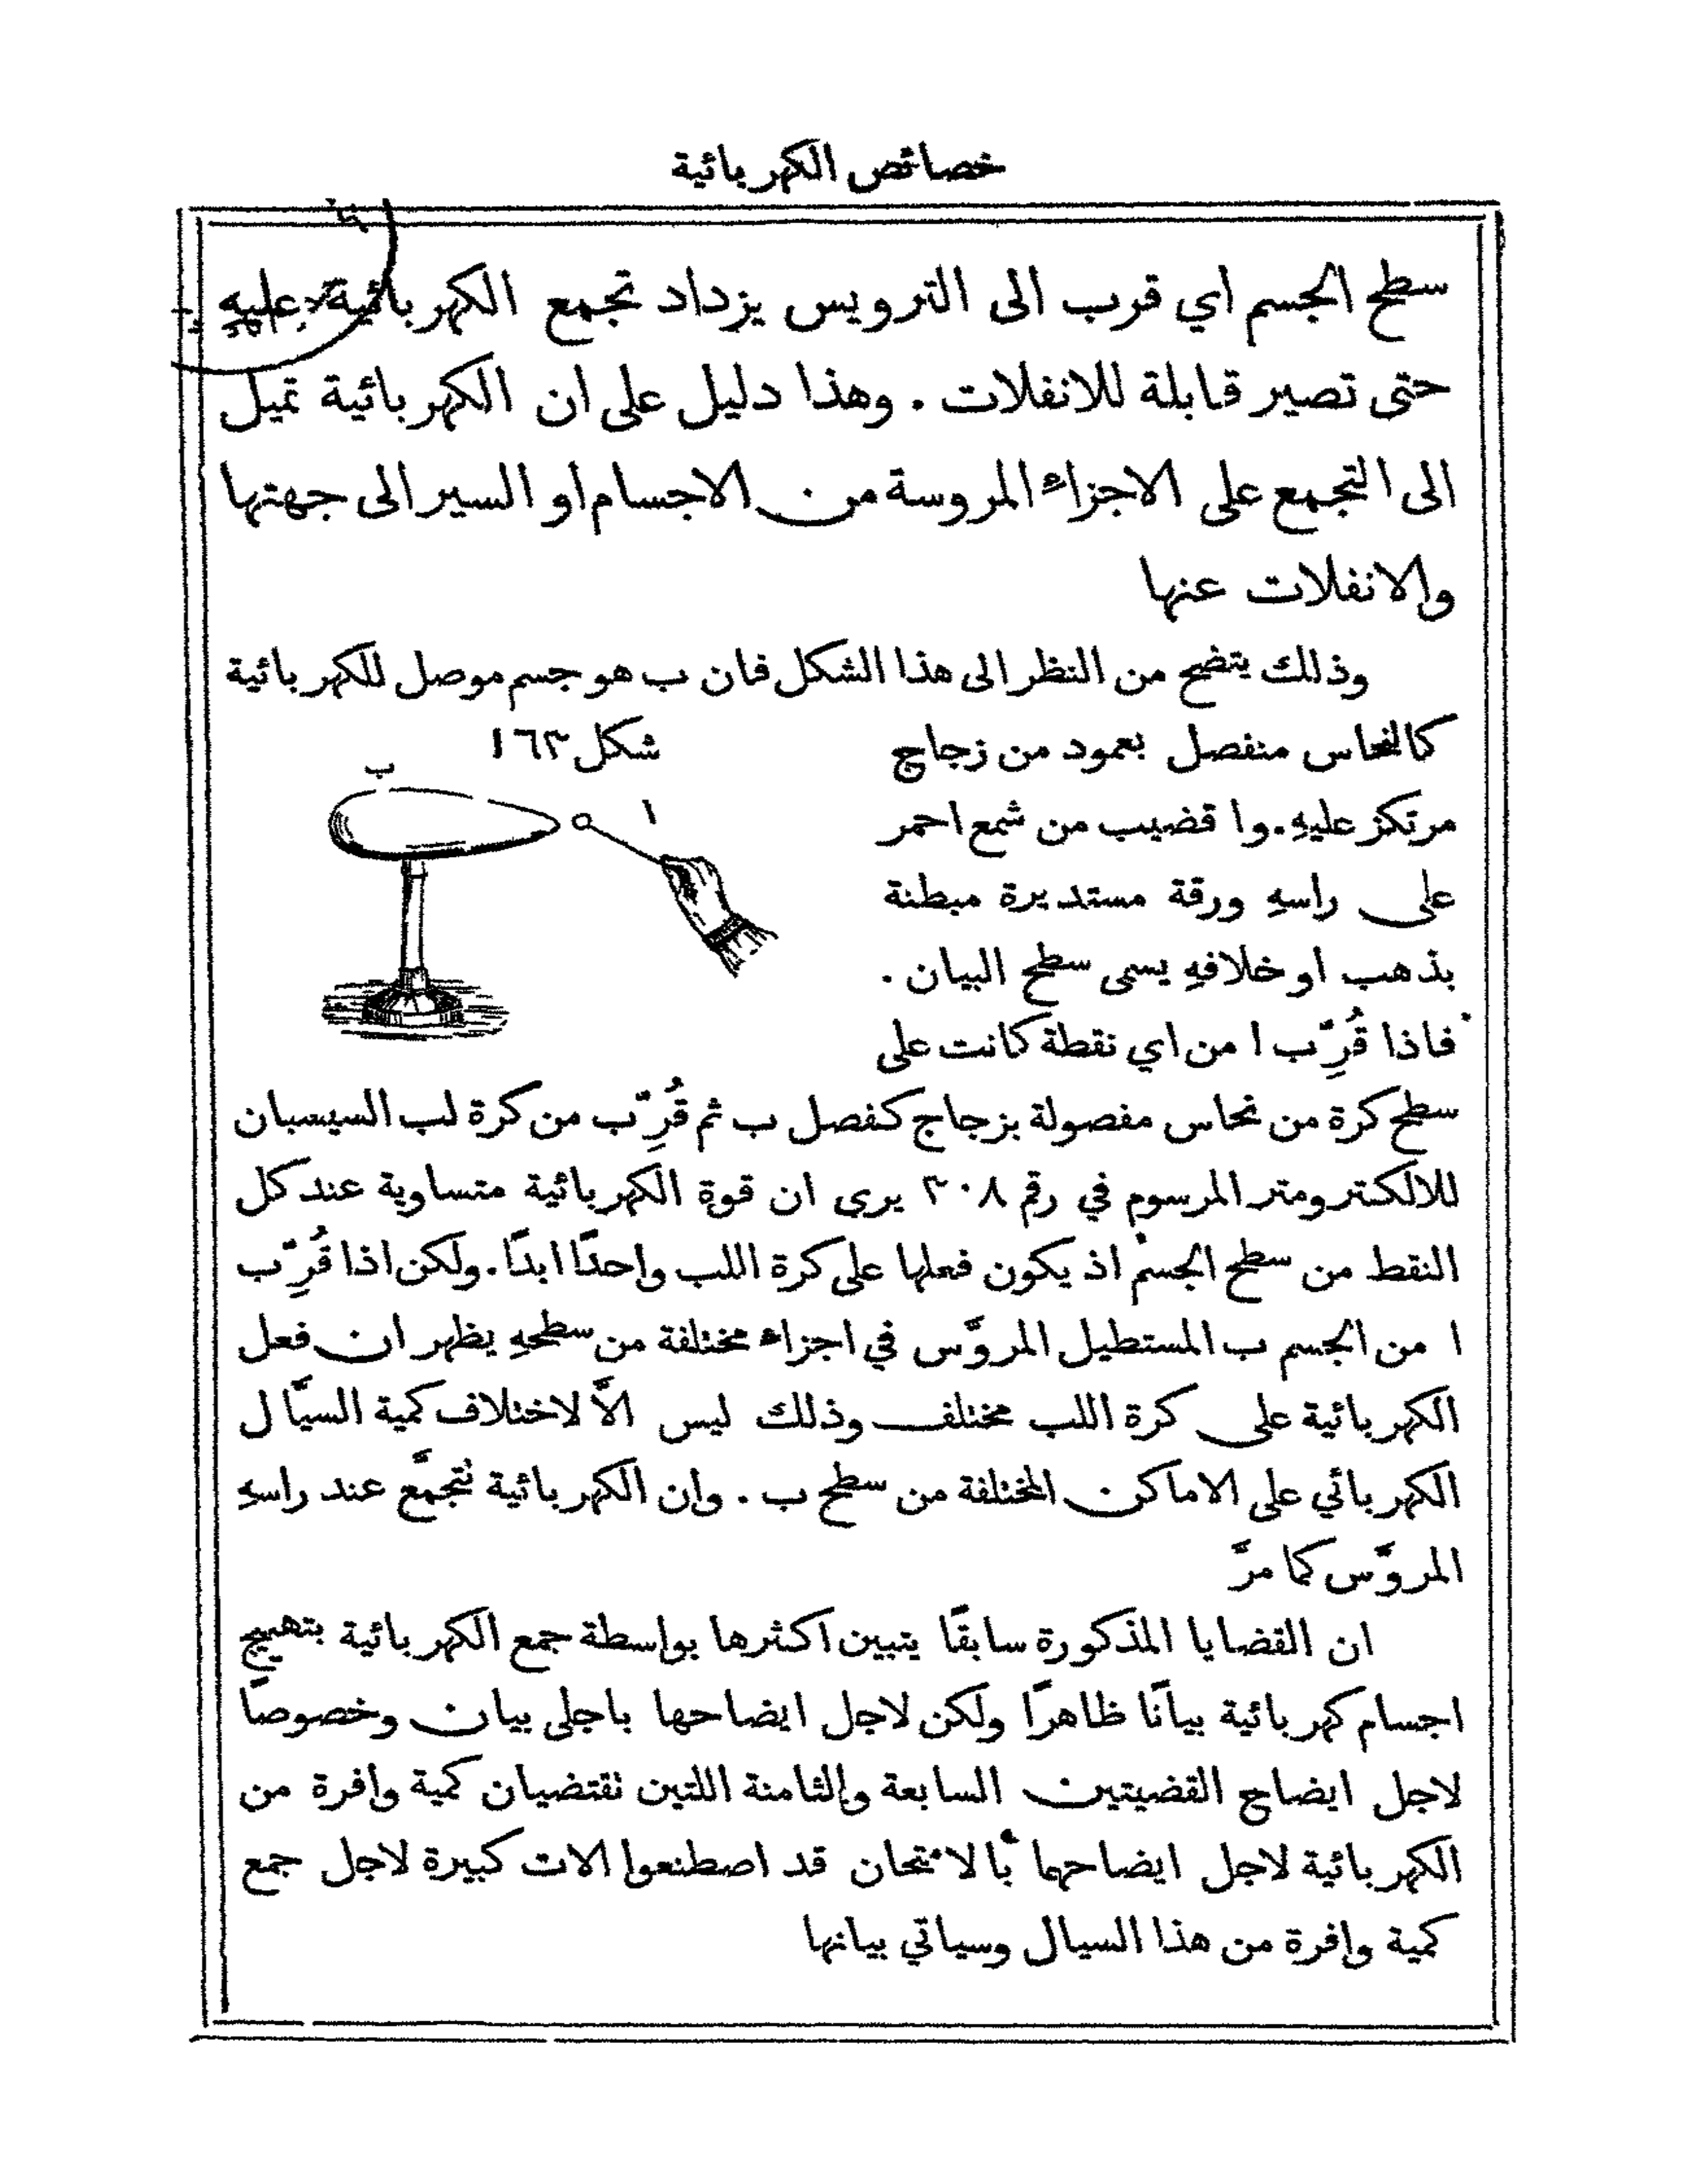 خصائص الكهربائية
سطح الجسم اي قرب الى الترويس يزداد تجمع الكهربائية عليهِ
حتى تصير قابلة للانفلات . وهذا دليل على ان الكهربائية تميل
الى التجمع على الاجزاء المروسة من الاجسام او السير الى جهتها
والانفلات عنها
وذلك يتضح من النظر الى هذا الشكل فان ب هو جسم موصل للكهربائية
كالنحاس منفصل بعمود من زجاج
شكل ١٦٣
مرتكز عليهِ . وا قضيب من شمع احمر
على راسهِ ورقة مستديرة مبطنة
بذهب او خلافهِ يسمى سطح البيان .
فاذا قُرِّب ا من اي نقطة كانت على
ب
ا
سطح كرة من نحاس مفصولة بزجاج كفصل ب ثم قُرِّب من كرة لب السيسبان
للالكترومتر المرسوم في رقم ٣٠٨ يرى ان قوة الكهربائية متساوية عند كل
النقط من سطح الجسم اذ يكون فعلها على كرة اللب واحدًا ابدًا . ولكن اذا قُرِّب
ا من الجسم ب المستطيل المروَّس في اجزاء مختلفة من سطحهِ يظهر ان فعل
الكهربائية على كرة اللب مختلف وذلك ليس الاَّ لاختلاف كمية السيَّال
الكهربائي على الاماكن المختلفة من سطح ب . وان الكهربائية تتجمَّع عند راسهِ
المروَّس كما مرَّ
ان القضايا المذكورة سابقًا يتبين اكثرها بواسطة جمع الكهربائية بتهييج
اجسام كهربائية بيانًا ظاهرًا ولكن لاجل ايضاحها باجلى بيان وخصوصًا
لاجل ايضاح القضيتين السابعة والثامنة اللتين تقتضيان كمية وافرة من
الكهربائية لاجل ايضاحها بالامتحان قد اصطنعوا الات كبيرة لاجل جمع
كمية وافرة من هذا السيال وسياتي بيانها